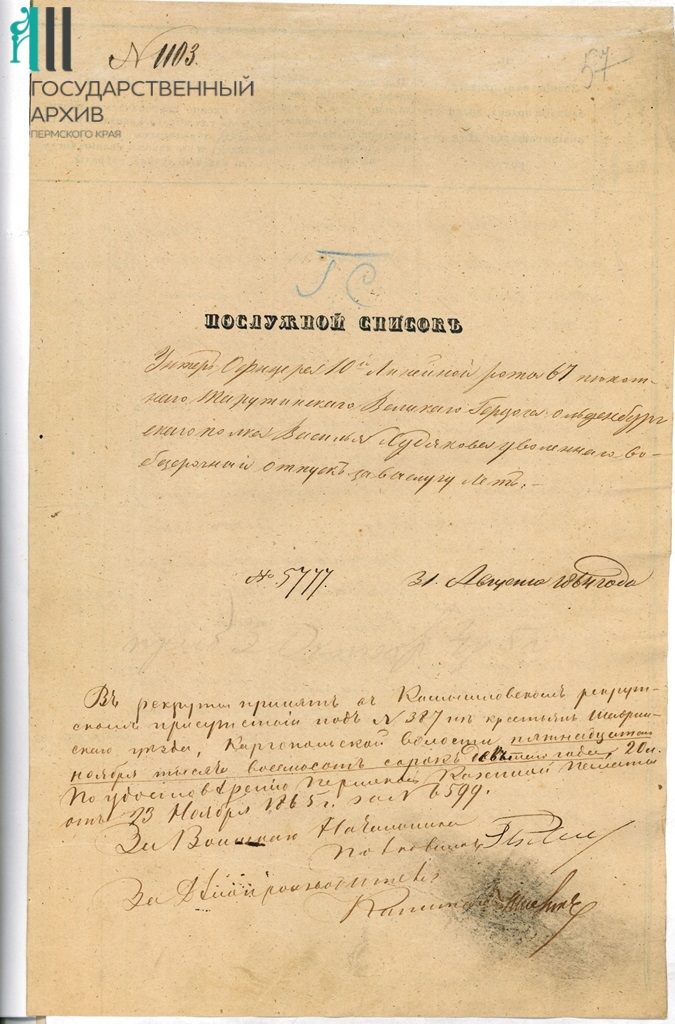 N 1103.
57
ГОСУДАРСТВЕННЫЙ
АРХИВ
ПЕРМСКОГО КРАЯ
ГС
ПОСЛУЖНОЙ СПИСОКЪ
Унтеръ Офицера 10й Линейной роты 67 пехот-
наго Тарутинскаго Великаго Герцога Ольденбург
скаго полка Василья Худякова уволеннаго во-
безсрочный отпускъ за выслугу Летъ.-
№ 5777.
31. Августа 1864 года
Въ рекруты принятъ въ Камышловскомъ рекрут-
скомъ присутствіи подъ N 387 изъ крестьянъ Шадрин-
скаго уезда, Каргопольской волости пятнадцатаго
ноября тысяча восемьсотъ сорокъ года, 20 л.
По удостовѣренію Пермской Казенной Палаты
отъ 23 Ноября 1865 г. за N 6599.
За Воинскаго Начальника
Полковникъ
За Делопроизводителя